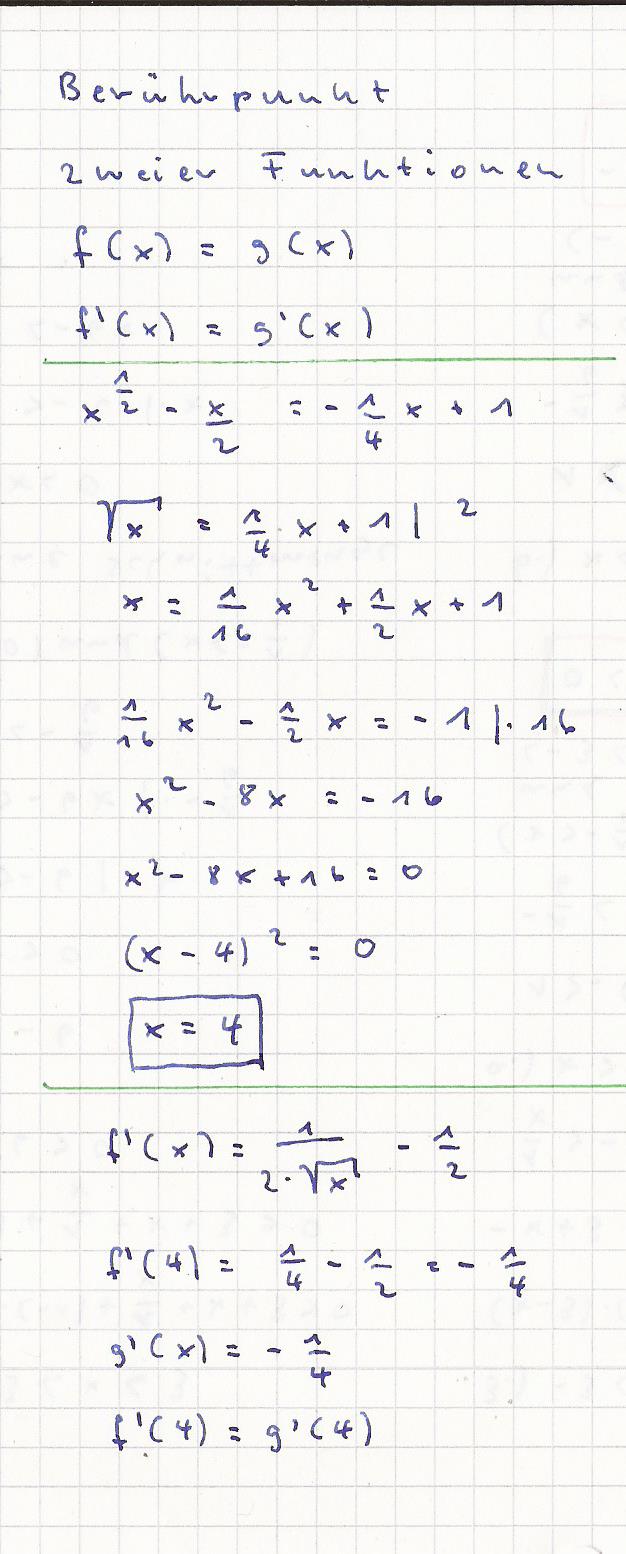 Berührpunkt
zweier Funktionen
f(x) = g(x)
f'(x) = g'(x)
x^(1/2) - x/2 = - 1/4 x + 1
√x = 1/4 x + 1 | ²
x = 1/16 x² + 1/2 x + 1
1/16 x² - 1/2 x = - 1 | · 16
x² - 8x = - 16
x² - 8x + 16 = 0
(x - 4)² = 0
x = 4
f'(x) = 1/(2·√x) - 1/2
f'(4) = 1/4 - 1/2 = - 1/4
g'(x) = - 1/4
f'(4) = g'(4)